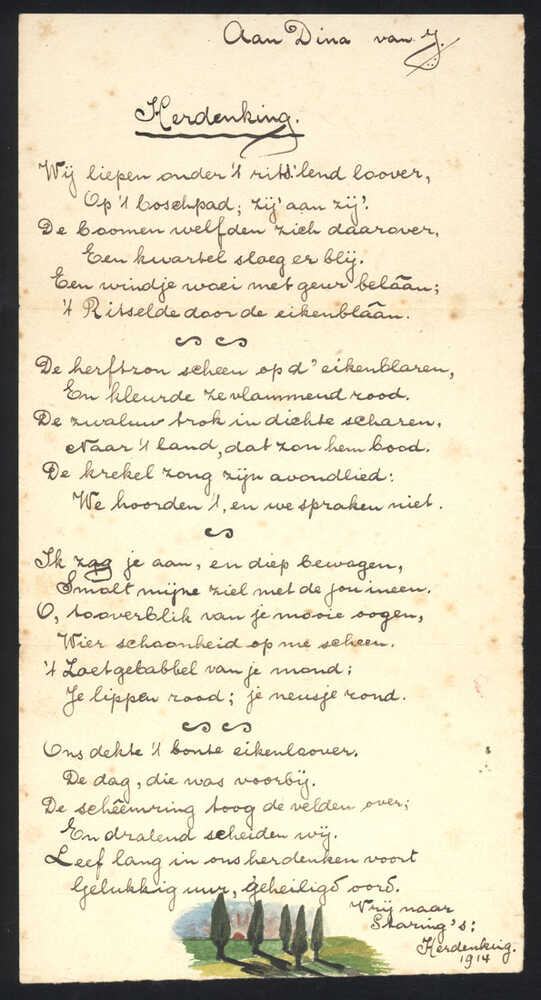 Aan Dina van J.
Herdenking.
Wij liepen onder 't rits'lend loover,
Op 't boschpad; zij' aan zij'.
De boomen welfden zich daarover,
Een kwartel sloeg er blij.
Een windje woei met geur belâân;
't Ritselde door de eikenblâân.
De herftzon scheen op d' eikenblaren,
En kleurde ze vlammend rood.
De zwaluw trok in dichte scharen,
Naar 't land, dat zon hem bood.
De krekel zong zijn avondlied:
We hoorden 't, en we spraken niet.
Ik zag je aan, en diep bewogen,
Smolt mijne ziel met de jou ineen.
O, tooverblik van je mooie oogen,
Wier schoonheid op me scheen.
't Zoet gebabbel van je mond;
Je lippen rood; je neusje rond.
Ons dekte 't bonte eikenloover.
De dag, die was voorbij.
De schêemring toog de velden over;
En dralend scheiden wij.
Leef lang in ons herdenken voort
Gelukkig uur, geheiligd oord.
Vrij naar
Staring's:
Herdenking.
1914